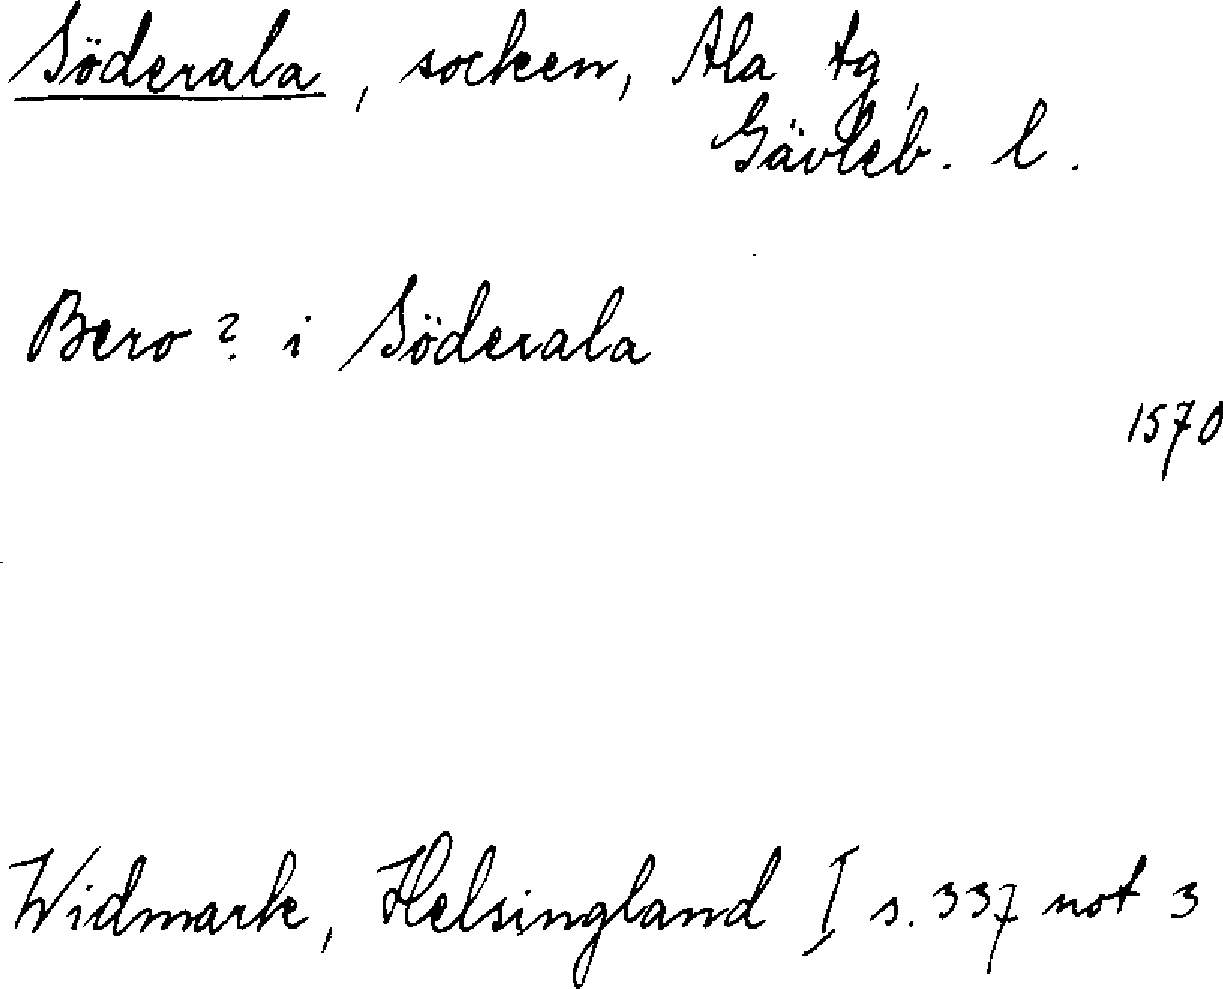 Söderala, socken, Ala tg,
Gävleb. l.
Bero? i Söderala
1570
Widmark, Helsingland I s. 337 not 3